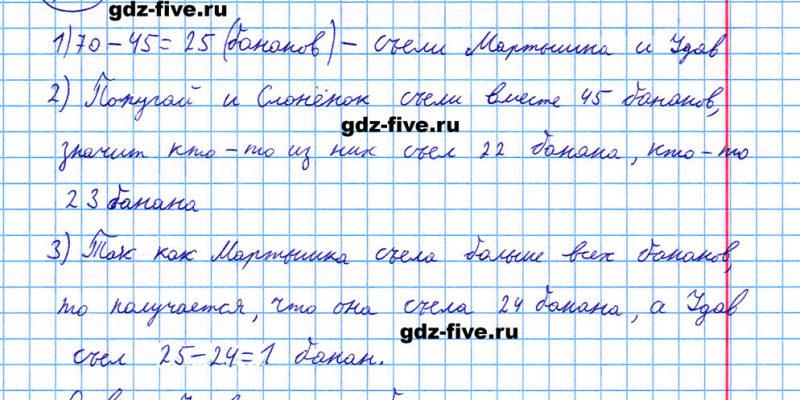 gdz-five.ru
1) 70 – 45 = 25 (бананов) – съели Мартышка и Удав
2) Попугай и Слонёнок съели вместе 45 бананов,
gdz-five.ru
значит кто-то из них съел 22 банана, кто-то
23 банана
3) Так как Мартышка съела больше всех бананов,
то получается, что она съела 24 банана, а Удав
gdz-five.ru
съел 25–24=1 банан.